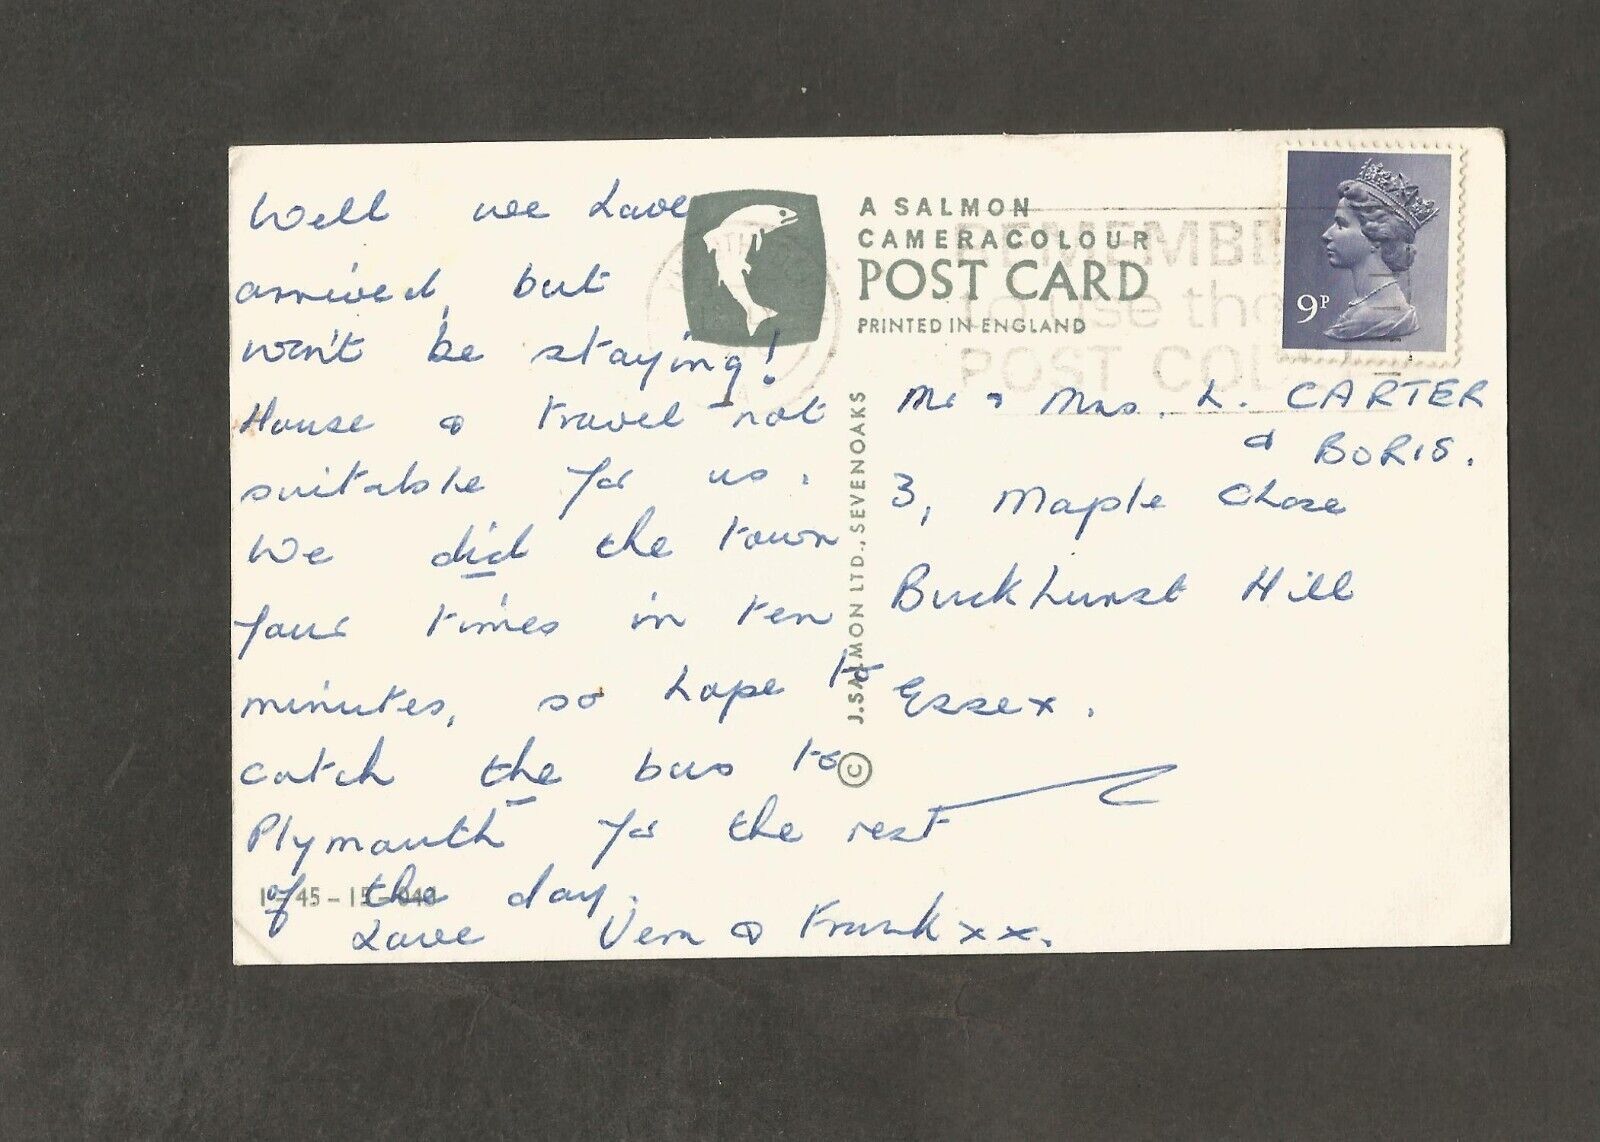 Well we have
arrived, but
won't be staying!
House & travel not
suitable for us.
We did the town
four times in ten
minutes, so hope to
catch the bus to
Plymouth for the rest
of the day.
Love Vern & Frank xx.
1-45-15
A SALMON
CAMERACOLOUR
POST CARD
PRINTED IN ENGLAND
REMEMBE
to use the
POST CO
9P
© J.SALMON LTD., SEVENOAKS
Mr & Mrs. L. CARTER
& BORIS.
3, Maple Chase
Buckhurst Hill
Essex.